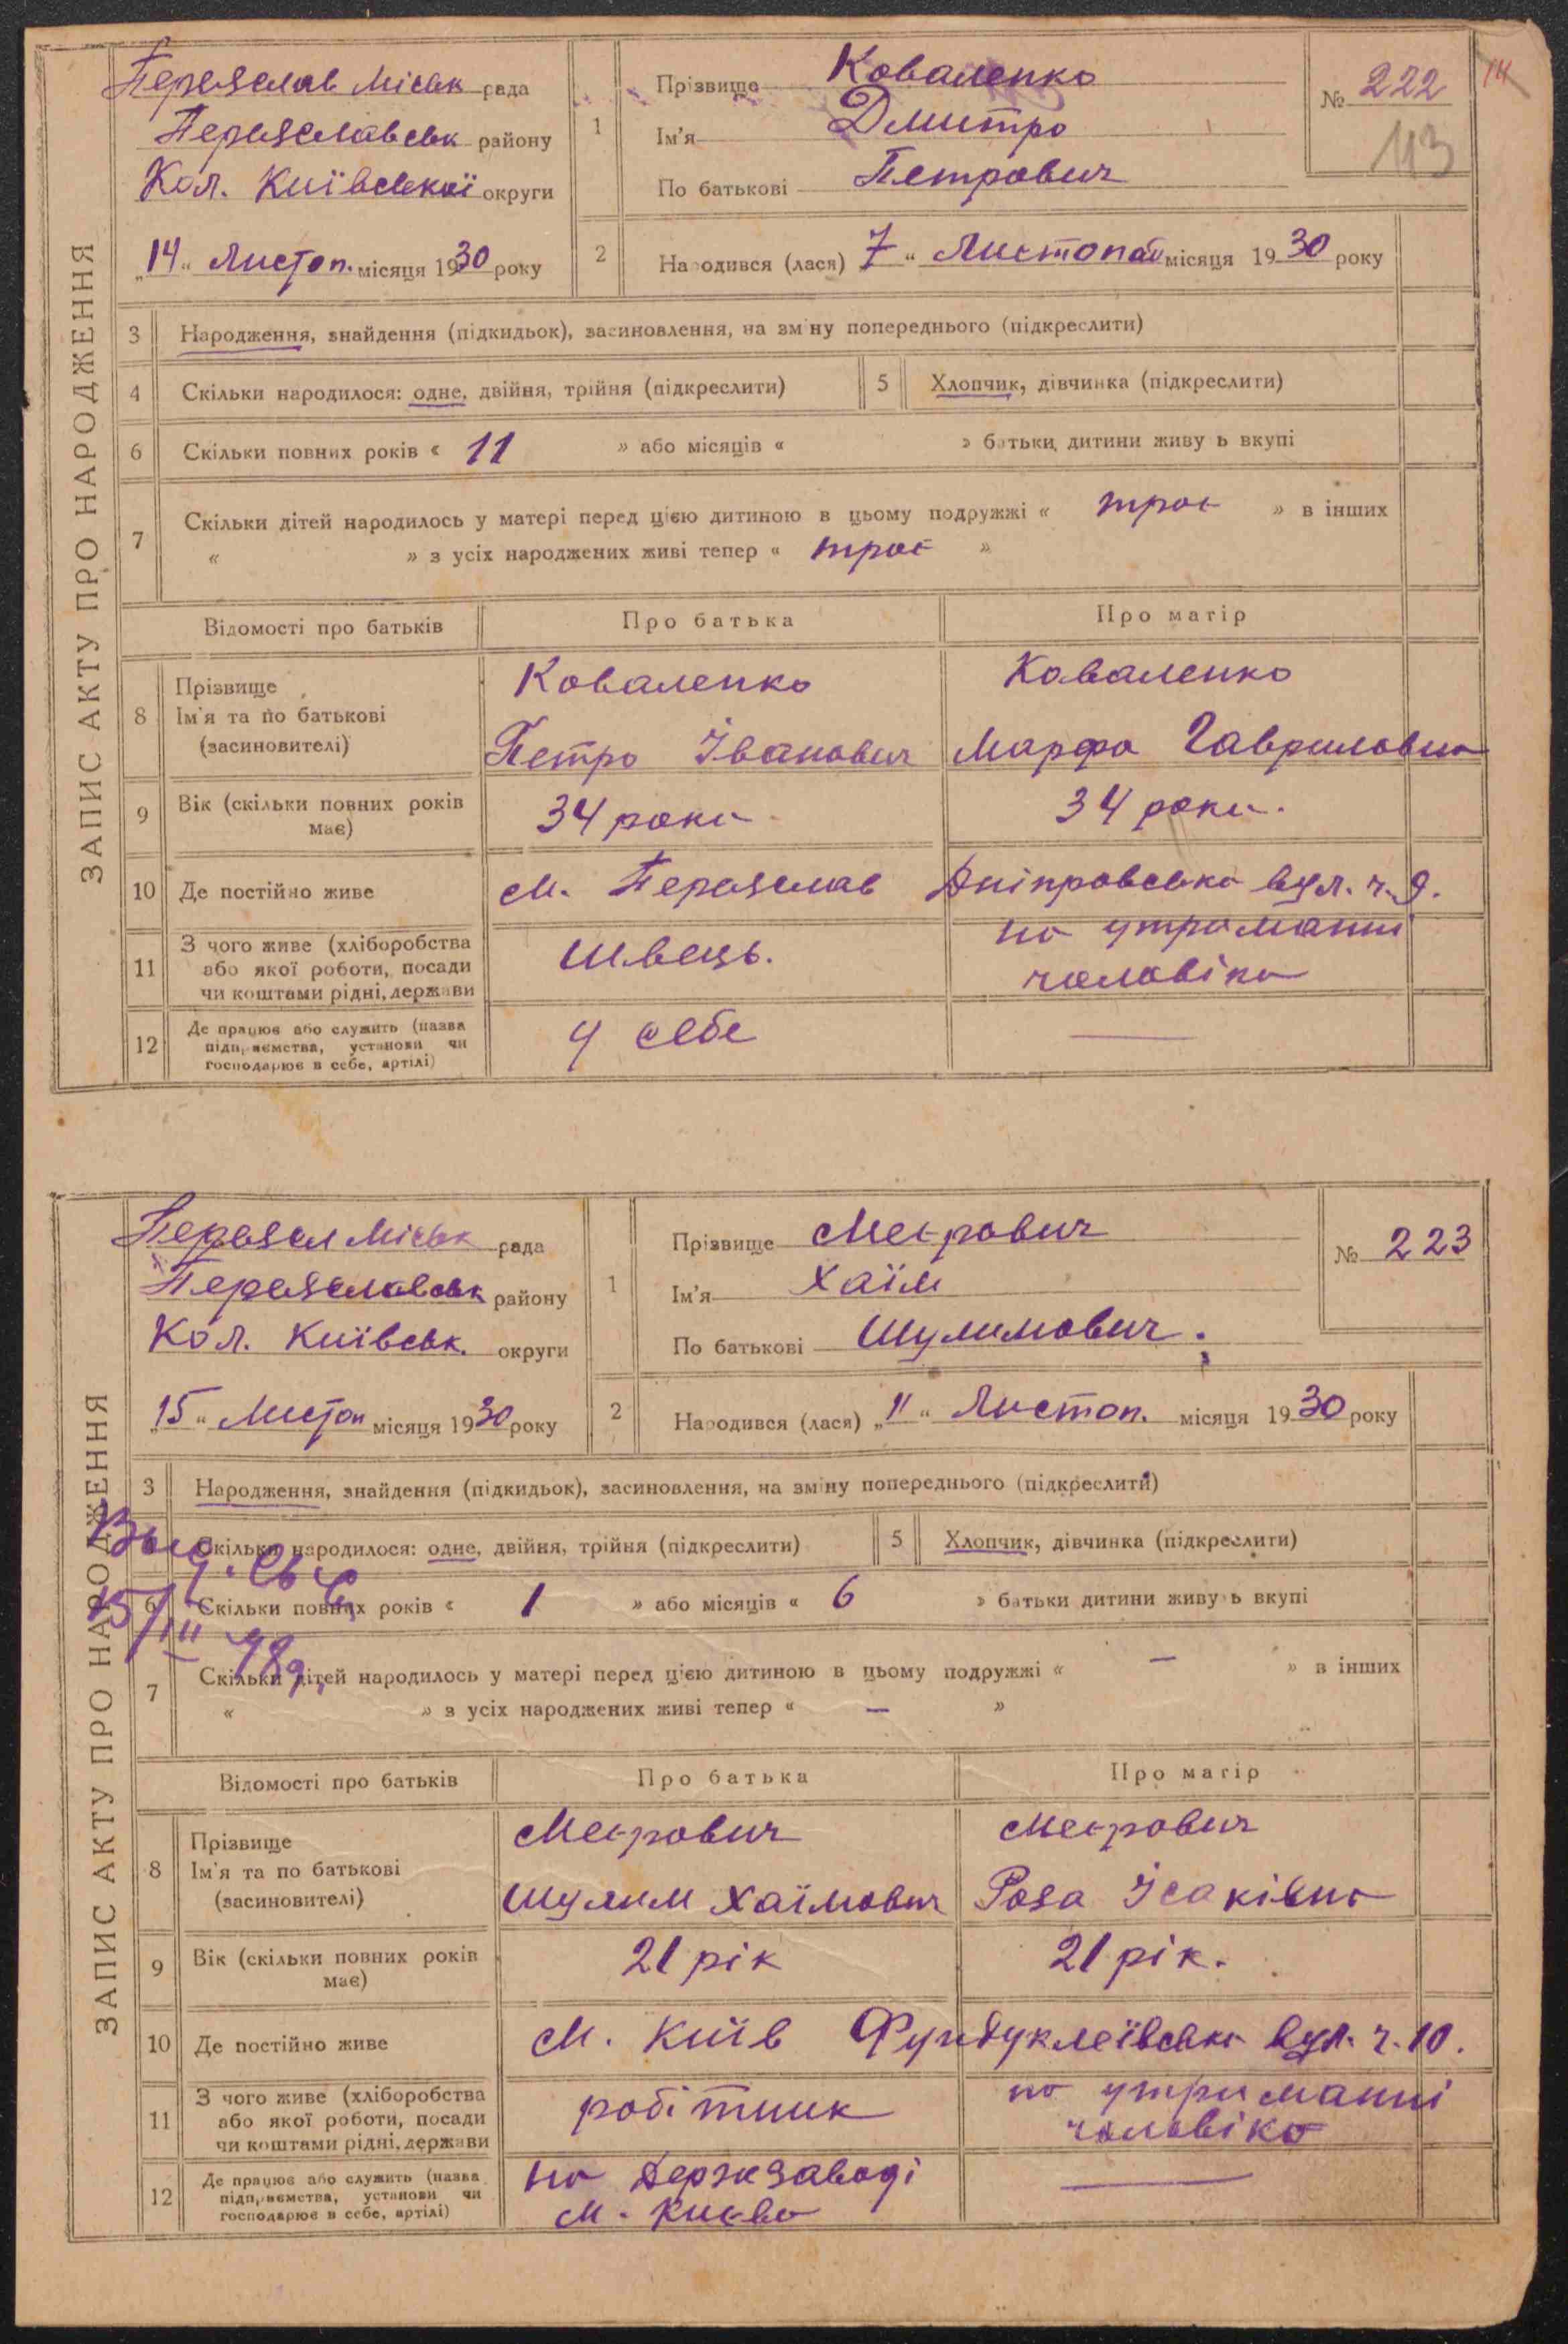 ЗАПИС АКТУ ПРО НАРОДЖЕННЯ
Переяслав Міськ рада
Переяславськ району
Кол. Київської округи
„14“ Листоп. місяця 1930 року
1
Прізвище Коваленко
Ім'я Дмитро
По батькові Петрович
№ 222
14
113
2
Народився (лася) 7 “ Листопад місяця 1930 року
3 Народження, знайдення (підкидьок), засиновлення, на зміну попереднього (підкреслити)
4 Скільки народилося: одне, двійня, трійня (підкреслити) 5 Хлопчик, дівчинка (підкреслити)
6 Скільки повних років « 11 » або місяців « » батьки дитини живуть вкупі
7 Скільки дітей народилось у матері перед цією дитиною в цьому подружжі « троє » в інших
« » з усіх народжених живі тепер « троє »
Відомості про батьків Про батька Про матір
8 Прізвище Коваленко Коваленко
Ім'я та по батькові
(засиновителі) Петро Іванович Марфа Гавриловна
9 Вік (скільки повних років має) 34 роки 34 роки.
10 Де постійно живе м. Переяслав Дніпровська вул. ч. 9.
11 З чого живе (хліборобства
або якої роботи, посади
чи коштами рідні, держави
Швець.
на утриманні
чоловіка
12 Де працює або служить (назва
підприємства, установи чи
господарює в себе, артілі)
У себе —
ЗАПИС АКТУ ПРО НАРОДЖЕННЯ
Переясл Міськ рада
Переяславськ району
Кол. Київськ. округи
„15“ Листоп місяця 1930 року
1
Прізвище Меєрович
Ім'я Хаїм
По батькові Шулимович.
№ 223
2
Народився (лася) „11“ Листоп. місяця 1930 року
3 Народження, знайдення (підкидьок), засиновлення, на зміну попереднього (підкреслити)
Скільки народилося: одне, двійня, трійня (підкреслити) 5 Хлопчик, дівчинка (підкреслити)
6 Скільки повних років « 1 » або місяців « 6 » батьки дитини живуть вкупі
15/III
7 Скільки дітей народилось у матері перед цією дитиною в цьому подружжі « — » в інших
« » з усіх народжених живі тепер « — »
Відомості про батьків Про батька Про матір
8 Прізвище Меєрович Меєрович
Ім'я та по батькові
(засиновителі) Шулим Хаїмович Роза Ісаківна
9 Вік (скільки повних років має) 21 рік 21 рік.
10 Де постійно живе м. Київ Фундуклеївська вул. ч. 10.
11 З чого живе (хліборобства
або якої роботи, посади
чи коштами рідні, держави
робітник
на утриманні
чоловіка
12 Де працює або служить (назва
підприємства, установи чи
господарює в себе, артілі)
на Держзаводі
м. Києва
—